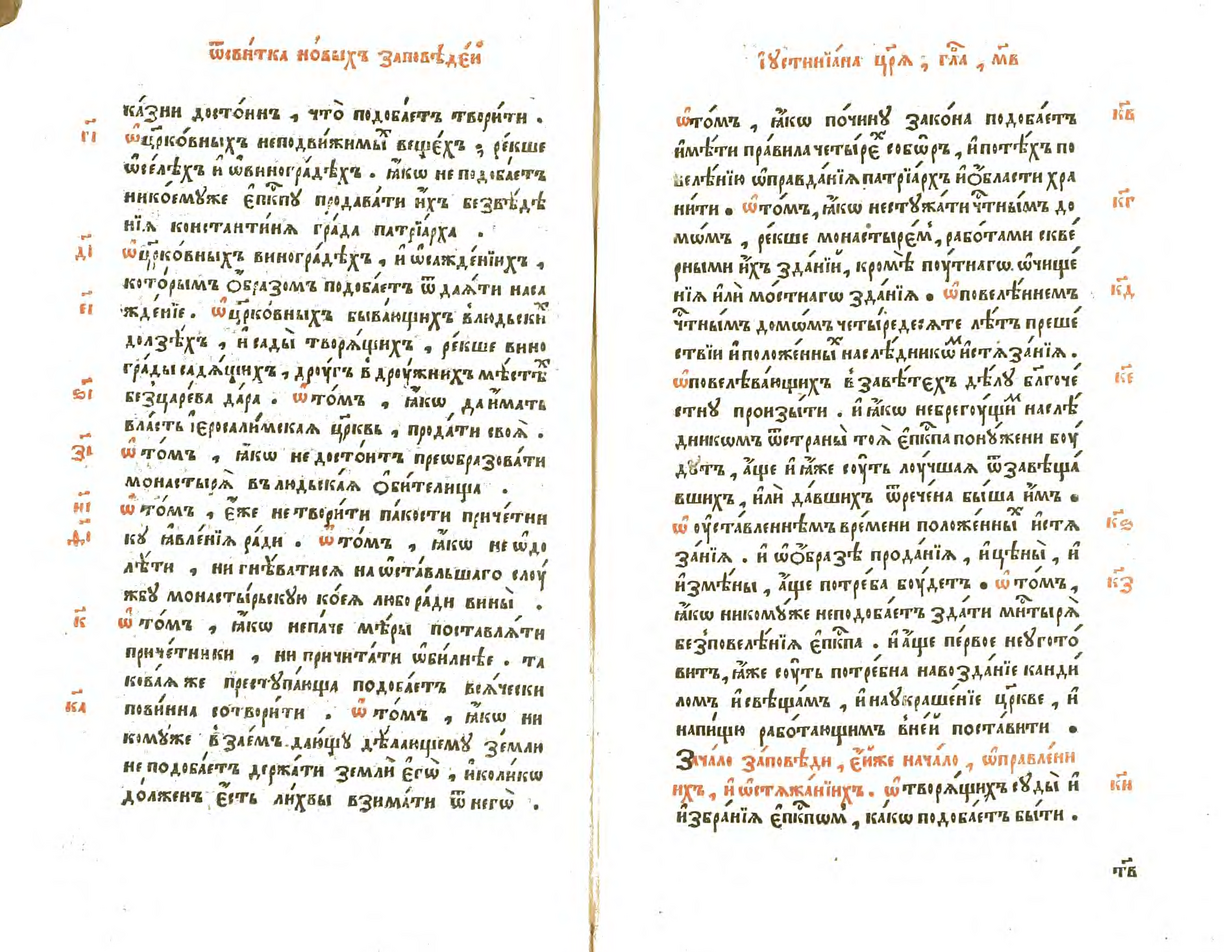 ѿсви́тка но́выхъ за́повѣде́й
ка́зни досто́инъ , что̀ подоба́етъ твори́ти .
г҃і
ѡ҆цр҃ко́вныхъ неподви́жимыⷯ веще́хъ ; ре́кше
ѡ҆се́лѣхъ и҆ ѡ҆виногра́дѣхъ . ꙗ҆́кѡ не подоба́етъ
нико́емуже є҆пⷭ҇кпꙋ продава́ти и҆́хъ безвѣ́дѣ
нїѧ константи́нѧ гра́да патрїа́рха .
д҃і
ѡ҆цр҃ко́вныхъ виногра́дѣхъ , и҆ ѡ҆сажде́нїихъ ,
кото́рымъ ѻ҆́бразомъ подоба́етъ ѿ даѧ́ти наса
жде́нїе . ѡ҆цр҃ко́вныхъ быва́ющихъ влю́дьскиⷯ
є҃і
долзѣ́хъ , и҆ сады̀ творѧ́щихъ , ре́кше вино
гра́ды садѧ́щихъ , дроу́гъ в дроу́жнихъ мѣ́стѣⷯ
безцаре́ва да́ра . ѡ҆ то́мъ , ꙗ҆́кѡ да и҆́мать
ѕ҃і
вла́сть і҆єросали́мскаѧ цр҃квь , прода́ти своѧ̀ .
з҃і
ѡ҆ то́мъ , ꙗ҆́кѡ не досто́итъ преѡбразова́ти
монастырѧ̀ въ лю́дьскаѧ ѻ҆би́телища .
и҃і
ѡ҆ то́мъ , є҆́же не твори́ти па́кости приче́тни
кꙋ ꙗ҆вле́нїѧ ра́ди . ѡ҆ то́мъ , ꙗ҆́кѡ не ѡ҆до
ѳ҃і
лѣ́ти , ни гнѣ́ватисѧ на ѡ҆ста́вльшаго слоу́
жбꙋ монасты́рьскꙋю ко́еѧ любо ра́ди вины̀ .
к҃
ѡ҆ то́мъ , ꙗ҆́кѡ непа́че мѣ́ры поставлѧ́ти
приче́тники , ни причита́ти ѡ҆би́лнѣе . та
кова́ѧ же престꙋпа́юща подоба́етъ всѧ́чески
пови́нна сотвори́ти . ѡ҆ то́мъ , ꙗ҆́кѡ ни
к҃а
комꙋже в за́емъ даю́щꙋ дѣ́лающемꙋ зе́млю
не подоба́етъ держа́ти землѝ є҆гѡ̀ , и҆коли́кѡ
до́лженъ є҆́сть ли́хвы взима́ти ѿ негѡ̀ .
і҆ꙋстинїа́на цр҃ѧ̀ ; гл҃а̀ , м҃в
ѡ҆то́мъ , ꙗ҆́кѡ по чи́нꙋ зако́на подоба́етъ
к҃в
и҆мѣ́ти пра́вила четы́реⷯ собѡ́ръ , и҆ потѣ́хъ по
велѣ́нїю ѡ҆правда́нїѧ патрїа́рхъ и҆ ѻ҆́бласти хра
ни́ти . ѡ҆то́мъ , ꙗ҆́кѡ нестꙋжа́ти чⷭ҇тны́мъ до
к҃г
мѡ́мъ , ре́кше монастыре́мⷨ , рабо́тами скве́
рными и҆́хъ зда́нїи , кромѣ̀ поу́тнагѡ ѡ҆чище
нїѧ и҆лѝ мо́стнагѡ зда́нїѧ . ѡ҆повелѣ́ннемъ
к҃д
чⷭ҇тны́мъ домѡ́мъ четы́редесѧте лѣ́тъ преше́
ствїи и҆ положе́нныⷯ наслѣ́дникѡⷨ и҆стѧза́нїѧ .
ѡ҆повелѣва́ющихъ в завѣ́тєхъ дѣ́лꙋ бл҃гоче́
к҃є
стнꙋ произы́ти . и҆ ꙗ҆́кѡ небрегоу́щиⷨ наслѣ́
дникѡмъ ѿ страны̀ тоѧ̀ є҆пⷭ҇кпа понꙋ́жени боу́
дꙋтъ , а҆́ще и҆ ꙗ҆́же соу́ть лоу́чшаѧ ѿ завѣща́
вшихъ , и҆лѝ да́вшихъ ѿрече́на бы́ша и҆̀мъ .
ѡ҆ оу҆ста́вленнѣмъ вре́мени положе́нныⷯ и҆стѧ
к҃ѕ
за́нїѧ . и҆ ѡ҆ ѻ҆́бразѣ прода́нїѧ , и҆ цѣны̀ , и҆
и҆змѣ́ны , а҆́ще потре́ба боу́детъ . ѡ҆ то́мъ ,
к҃з
ꙗ҆́кѡ никомꙋ́же неподоба́етъ зда́ти мⷭ҇тырѧ̀
безповелѣ́нїѧ є҆пⷭ҇кпа . и҆ а҆́ще пе́рвое неꙋ҆гото́
витъ , ꙗ҆́же соу́ть потре́бна навозда́нїе канди́
ломъ и҆ свѣща́мъ , и҆ наꙋкраше́нїе цр҃кве , и҆
напи́щꙋ рабо́тающимъ в не́й поста́вити .
Зача́ло за́повѣди , є҆́йже нача́ло , ѡ҆правле́ни
ихъ , и҆ ѡ҆стѧжа́нїихъ . ѡ҆ творѧ́щихъ сꙋды̀ и҆
к҃и
и҆збра́нїѧ є҆пⷭ҇кпѡмⷨ , ка́кѡ подоба́етъ бы́ти .
т҃в